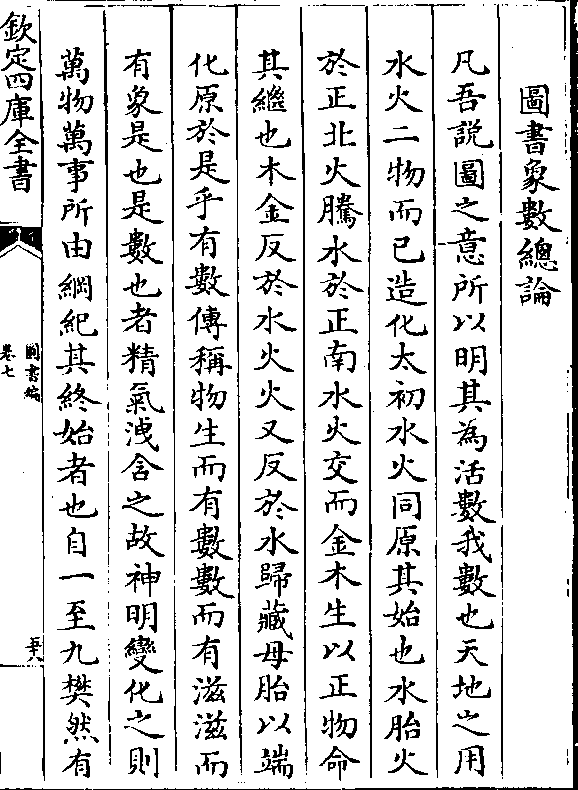 圖書象數總論
凡吾説圖之意所以明其為活數我數也天地之用
水火二物而已造化太初水火同原其始也水胎火
於正北火騰水於正南水火交而金木生以正物命
其繼也木金反於水火火又反於水歸藏母胎以端
化原於是乎有數傳稱物生而有數數而有滋滋而
有象是也是數也者精氣洩含之故神明變化之則
萬物萬事所由綱紀其終始者也自一至九樊然有
欽定四庫全書
圖書編
卷七